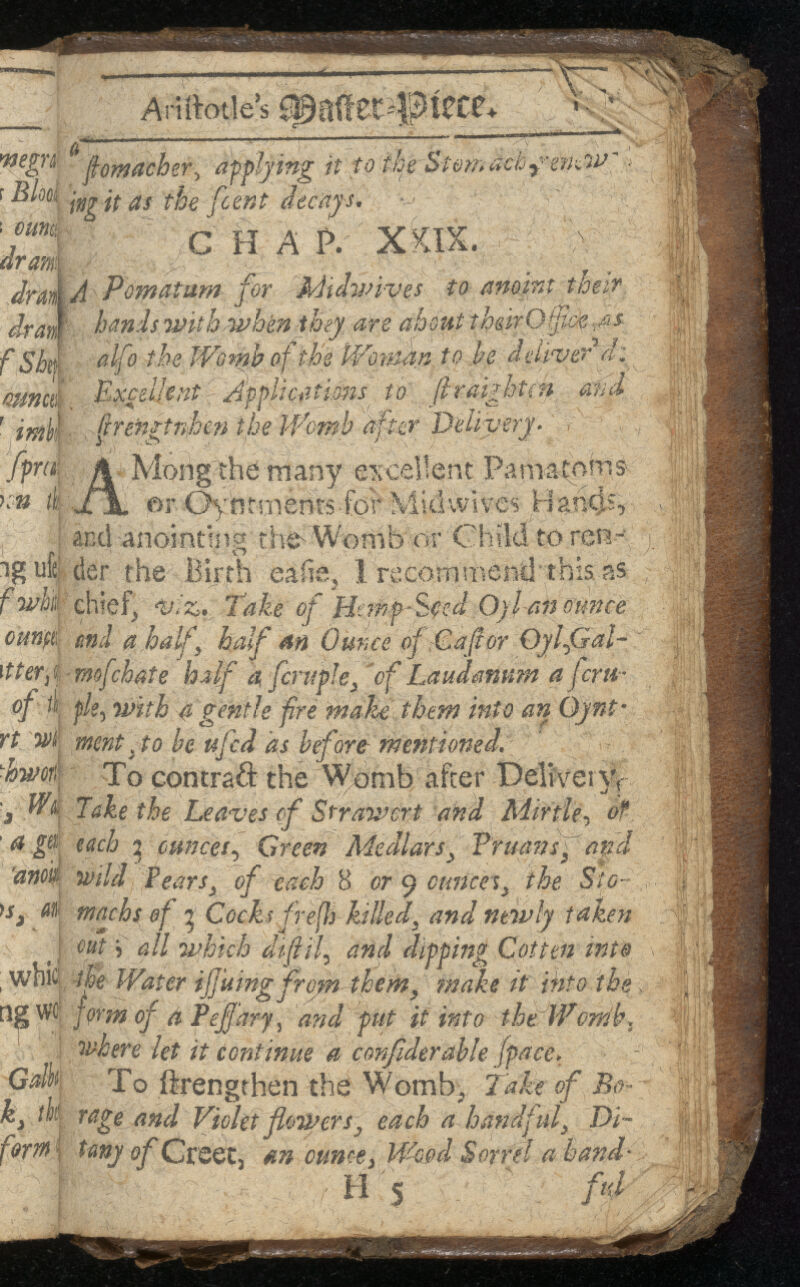 Ariſtotle's Maſter-Piece.
a ſtomacher, applying it to the Stomach, renew-
ing it as the ſcent decays.
CHAP. XXIX.
A Pomatum for Midwives to anoint their
hands with when they are about their Office, as
alſo the Womb of the Woman to be deliver'd:
Excellent Applications to ſtraighten and
ſtrengtnhen the Womb after Delivery.
AMong the many excellent Pamatoms
or Oyntments for Midwives Hands,
and anointing the Womb or Child to ren-
der the Birth eaſie, I recommend this as
chief, viz. Take of Hemp-Seed Oyl an ounce
and a half, half an Ounce of Caſtor Oyl, Gal-
moſchate half a ſcruple, of Laudanum a ſcru-
ple, with a gentle fire make them into an Oynt-
ment, to be uſed as before mentioned.
To contract the Womb after Delivery,
Take the Leaves of Strawert and Mirtle, of
each 3 ounces, Green Medlars, Pruans, and
wild Pears, of each 8 or 9 ounces, the Sto-
machs of 3 Cocks freſh killed, and newly taken
out; all which diſtil, and dipping Cotten into
the Water iſſuing from them, make it into the
form of a Peſſary, and put it into the Womb,
where let it continue a conſiderable ſpace.
To ſtrengthen the Womb, Take of Bo-
rage and Violet flowers, each a handful, Di-
tany of Creet, an ounce, Wood Sorrel a hand-
H 5 ful
megra
Blood
ounce
dram
dram
dram
f Shee
ounces
imb
ſprea
th
ng uſe
f whi
ounce
tter,
of th
rt
thwort
a gen
anoin
whic
ng wo
Galb
k, the
form